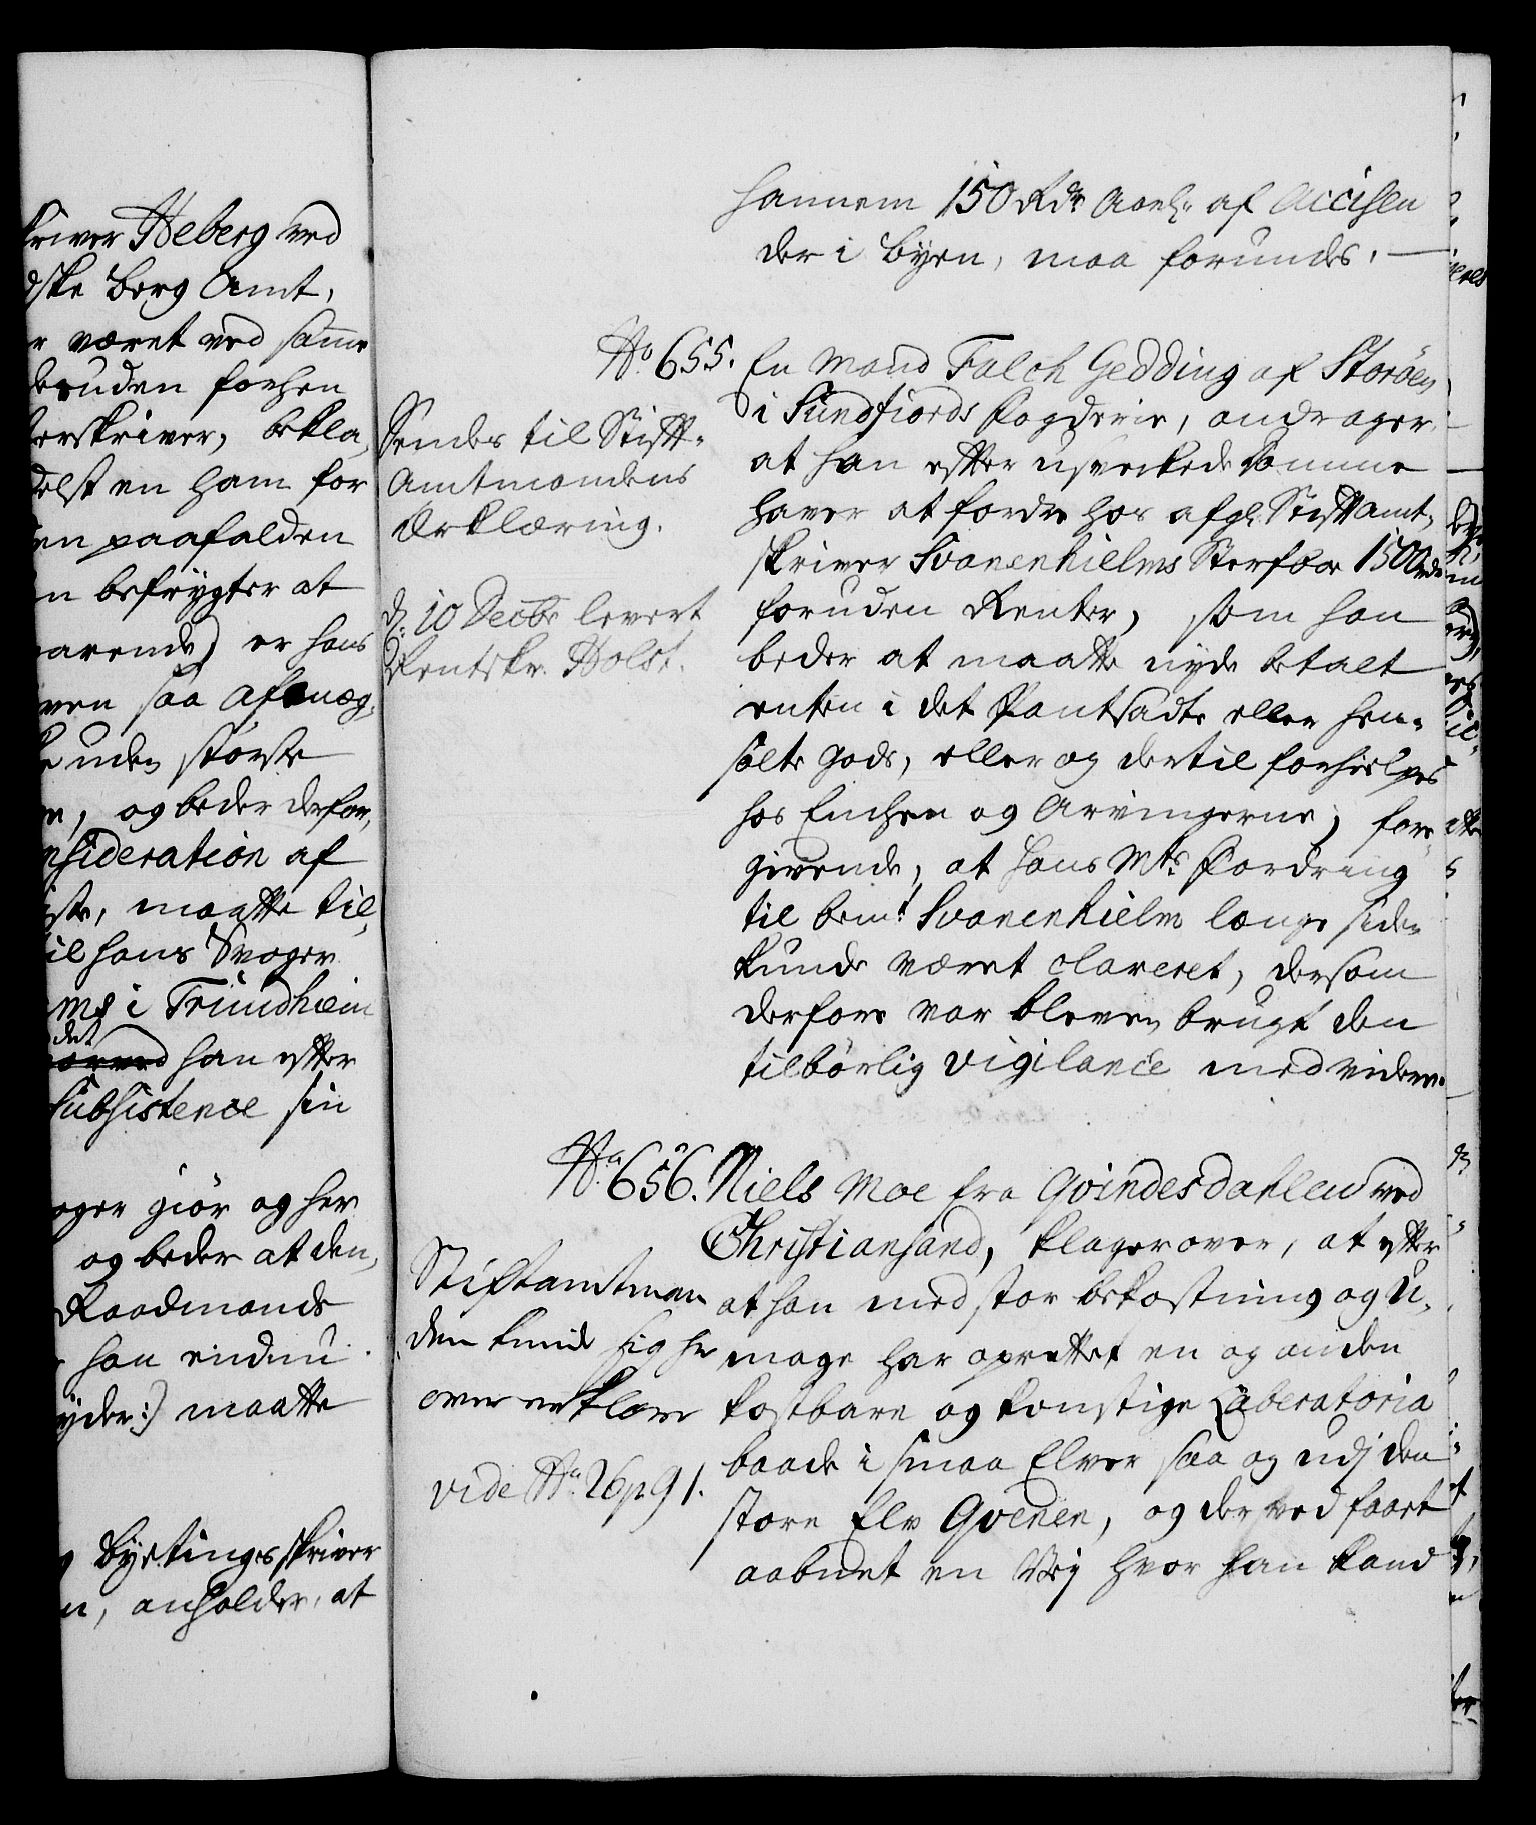 kriver Heberg ved
dske Berg Amt,
r været ved samme
desuden forhen
terskriver, bekla,
delst en ham for
en paafalden
n befrygter at
varende) er hans
ven saa afknæg,
uden største
og beder derfor,
nsideration af
maatte til,
il hans Svoger
i Trundhiem
det
han efter
Subsistence sin
ger giør og her
og beder at den,
Raadmands
han endnu
yder:) maatte
Byetingsskriver
anholder, at
hannem 150 Rdr Aarl: af Accisen
der i Byen, maa forundes.
No. 655. En Mand Falch Gedding af Storöen
i Sundfiords Fogderie, andrager
at han efter usvekkede Domme
haver at fordre hos afg: Stiftamt,
skriver Svanenhielms Sterfboe 1500 rdr
foruden Renter, som han
beder at maatte nyde betalt
enten i det Pantsadte eller hen-
solte Gods, eller og dertil forhielpes
hos Enchen og Arvingerne; fore-
givende, at hans Mts. Fordring
til bemt. Svanenhielm længe siden
kunde været clareret, dersom
derfore var bleven brugt den
tilbörlig Vigilance med videre.
Sendes til Stift-
Amtmandens
Erklæring.
d. 10 Decbr levert
Rentskr. Holst.
No. 656. Niels Moe fra Qvindesdahlen ved
Christiansand, klager over, at efter
at han med stor bekostning og U-
mage har oprettet en og anden
kostbare og konstige Laberatoria
baade i smaa Elver saa og udj den
store Elv Qvenen, og derved faaet
aabnet en Vej hvor han kand
Stiftamtman
den kunde sig her
over erklære
vide No. 26 p 91.